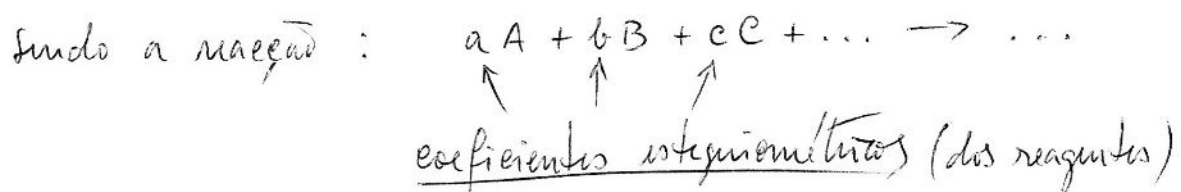 Sendo a reacção : aA + bB + cC + ... → ...
coeficientes estequiométricos (dos reagentes)